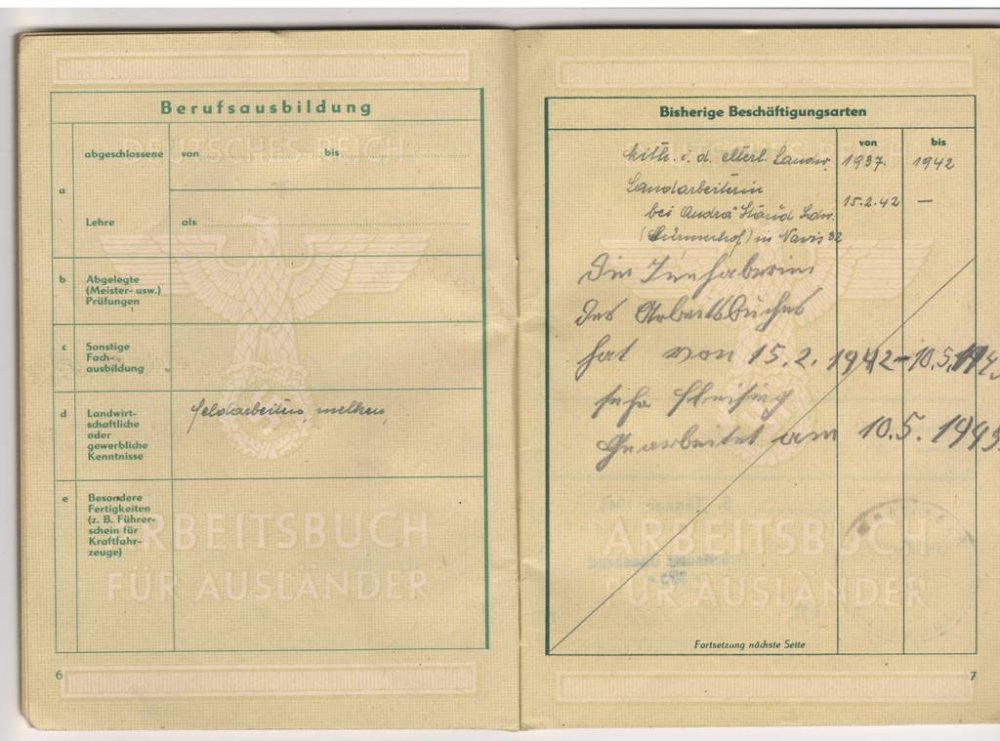 Berufsausbildung
a
abgeschlossene von bis
Lehre als
b Abgelegte
(Meister- usw.)
Prüfungen
c Sonstige
Fach-
ausbildung
d Landwirt-
schaftliche
oder
gewerbliche
Kenntnisse
feldarbeiten, melken,
e Besondere
Fertigkeiten
(z. B. Führer-
schein für
Kraftfahr-
zeuge)
DEUTSCHES REICH
ARBEITSBUCH
FÜR AUSLÄNDER
6
Bisherige Beschäftigungsarten
von bis
i. d. elterl. Landw. 1937. 1942
Landarbeiterin
bei Andrä Ldw. 15.2.42 —
in Navis 32
Die Innhaberin
des Arbeitsbuches
hat von 15.2.1942-10.5.
sehr fleisig
gearbeitet am 10.5.
ARBEITSBUCH
FÜR AUSLÄNDER
Fortsetzung nächste Seite
7